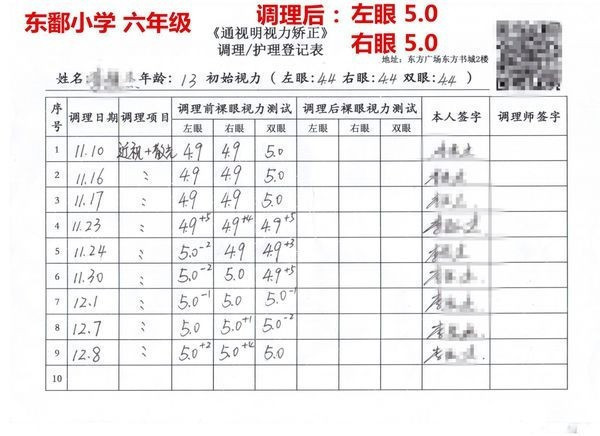 东鄱小学 六年级
调理后：左眼 5.0
右眼 5.0
《通视明视力矫正》
调理/护理登记表
地址：东方广场东方书城2楼
姓名 年龄：13 初始视力（左眼：4.4 右眼：4.4 双眼：4.4）
序号 调理日期 调理项目 调理前裸眼视力测试 调理后裸眼视力测试 本人签字 调理师签字
左眼 右眼 双眼 左眼 右眼 双眼
1 11.10 近视+散光 4.9 4.9 5.0
2 11.16 〃 4.9 4.9 4.9
3 11.17 〃 4.9 4.9 4.9
4 11.23 〃 4.9+5 4.9+4 4.9+5
5 11.24 〃 5.0-2 4.9 4.9+3
6 11.30 〃 5.0-2 5.0 4.9+5
7 12.1 〃 5.0-1 5.0 5.0-1
8 12.7 〃 5.0 5.0+1 5.0-2
9 12.8 〃 5.0+2 5.0+4 5.0
10